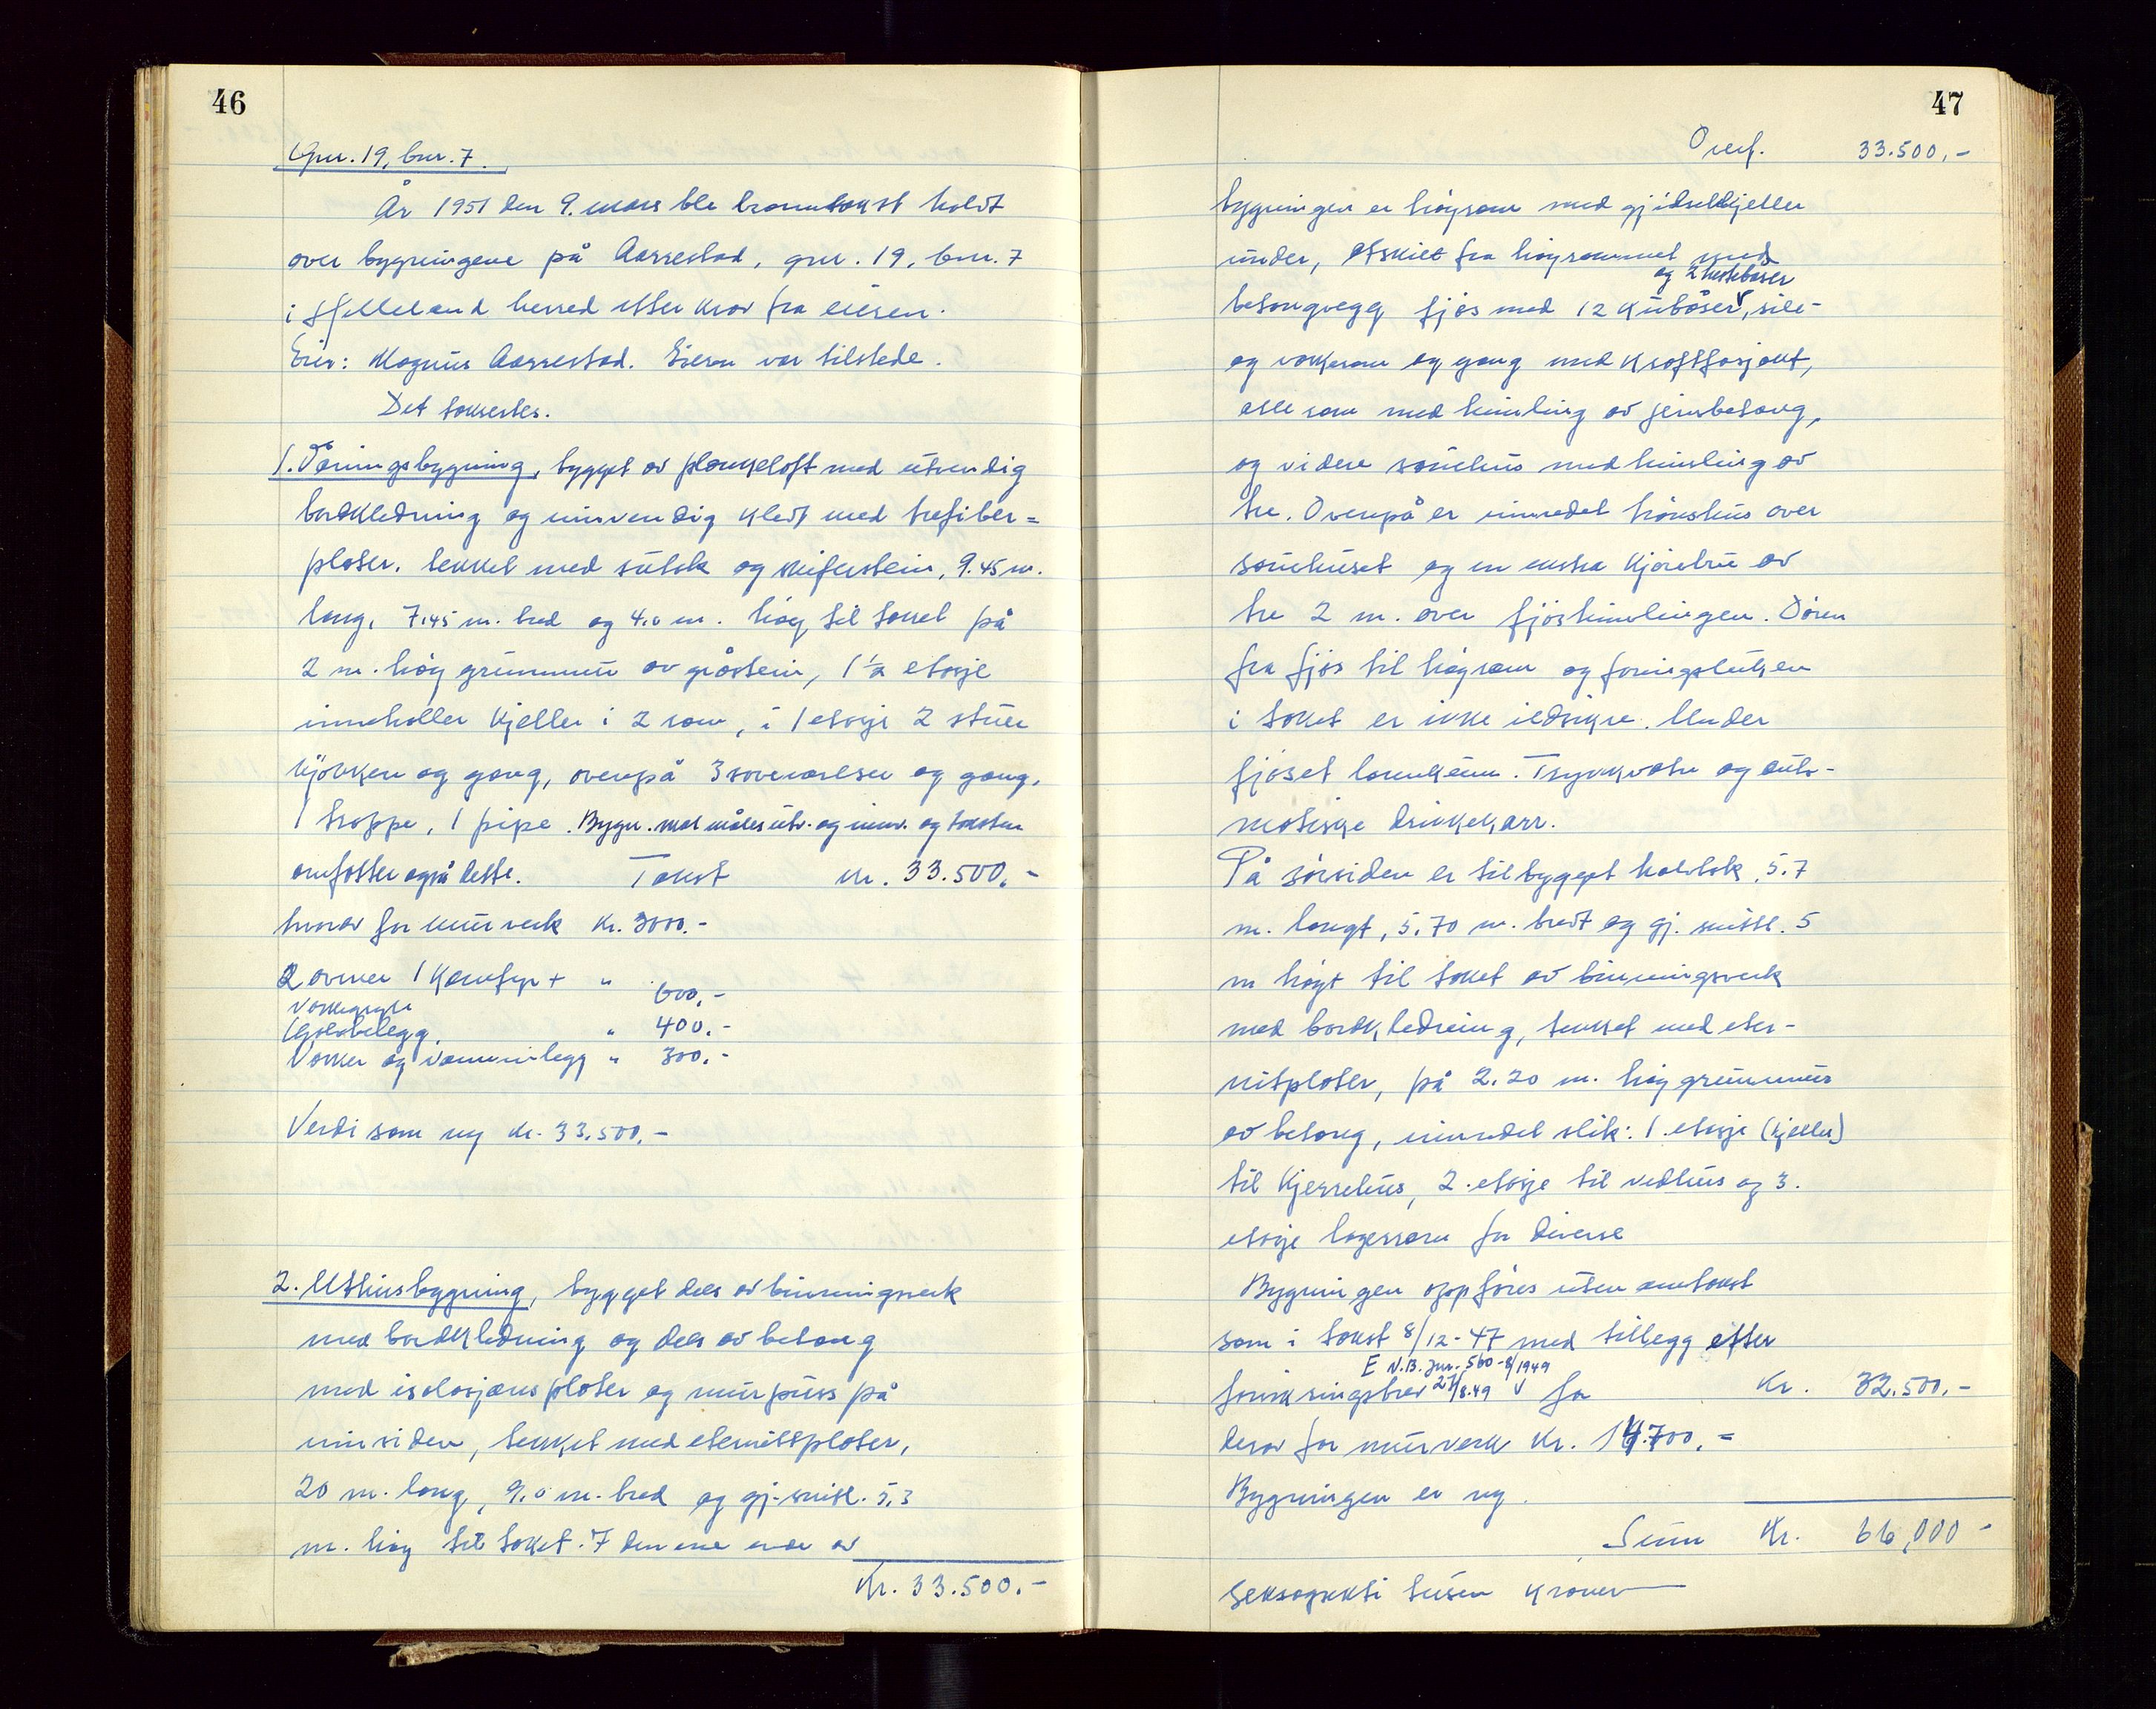 46
Gnr. 19, bnr. 7.
År 1951 den 9. mars ble branntakst holdt
over bygningene på Aarrestad, gnr. 19, bnr. 7
i Helleland herred etter krav fra eieren.
Eier: Magnus Aarrestad. Eieren var tilstede.
Det takseres.
1. Våningsbygning, bygget av plankeloft med utvendig
bordkledning og innvendig kledt med trefiber=
plater. tekket med sutak og skiferstein, 9.45 m.
lang, 7.45 m. bred og 4.0 m. høg til taket på
2 m. høg grunnmur av gråstein, 1 ½ etasje
inneholler kjeller i 2 rom, i 1 etasje 2 stuer
kjøkken og gang, ovenpå 3 soveværelser og gang,
1 trappe, 1 pipe. Bygn. skal måles utv. og innv. og taksten
omfatter også dette. Takst kr. 33.500.-
hvorav for murverk kr. 3000.-
2 ovner 1 komfyr + " 600.-
vaskegryte
Golvbelegg " 400.-
Vasker og vanninlegg " 300.-
Verdi som ny kr. 33.500.-
2. Uthusbygning, bygget dels av binningsverk
med bordkledning og dels av betong
med isolasjonsplater og murpuss på
innsiden, tekket med eternittplater,
20 m. lang, 9.0 m. bred og gj. snitl. 5.3
m. høg til taket. I den ene ende av
Kr. 33.500.-
47
Overf. 33.500,-
bygningen er høyrom med gjødselkjeller
under, atskilt fra høyrommet med
og 2 hestebåser
betongvegg fjøs med 12 kubåser, sile-
og vaskerom og gang med kraftforsjakt,
alle rom med himling av jernbetong,
og videre sauehus med himling av
tre. Ovenpå er innredet hønsehus over
sauehuset og en ekstra kjørebru av
tre 2 m. over fjøshimlingen. Døren
fra fjøs til høyrom og foringsluken
i taket er ikke ildsikre. Under
fjøset landkum. Trykkvatn og auto-
matiske drikkekarr.
På sørsiden er tilbygget halvtak, 5.7
m. langt, 5.70 m. bredt og gj. snittl. 5
m høgt til taket av binningsverk
med bordkledning, tekket med eter-
nitplater, på 2.20 m. høg grunnmur
av betong, innredet slik: 1. etasje (kjeller)
til kjerrehus, 2. etasje til vedhus og 3.
etasje lagerrom for diverse
Bygningen oppføres uten omtakst
som i takst 8/12-47 med tillegg etter
E N.B. jnr. 560-8/1949
forsikringsbrev 27/8.49 V for kr. 32.500.-
derav for murverk kr. 14.700.-
Bygningen er ny.
Sum Kr. 66,000 -
seksogseksti tusen kroner